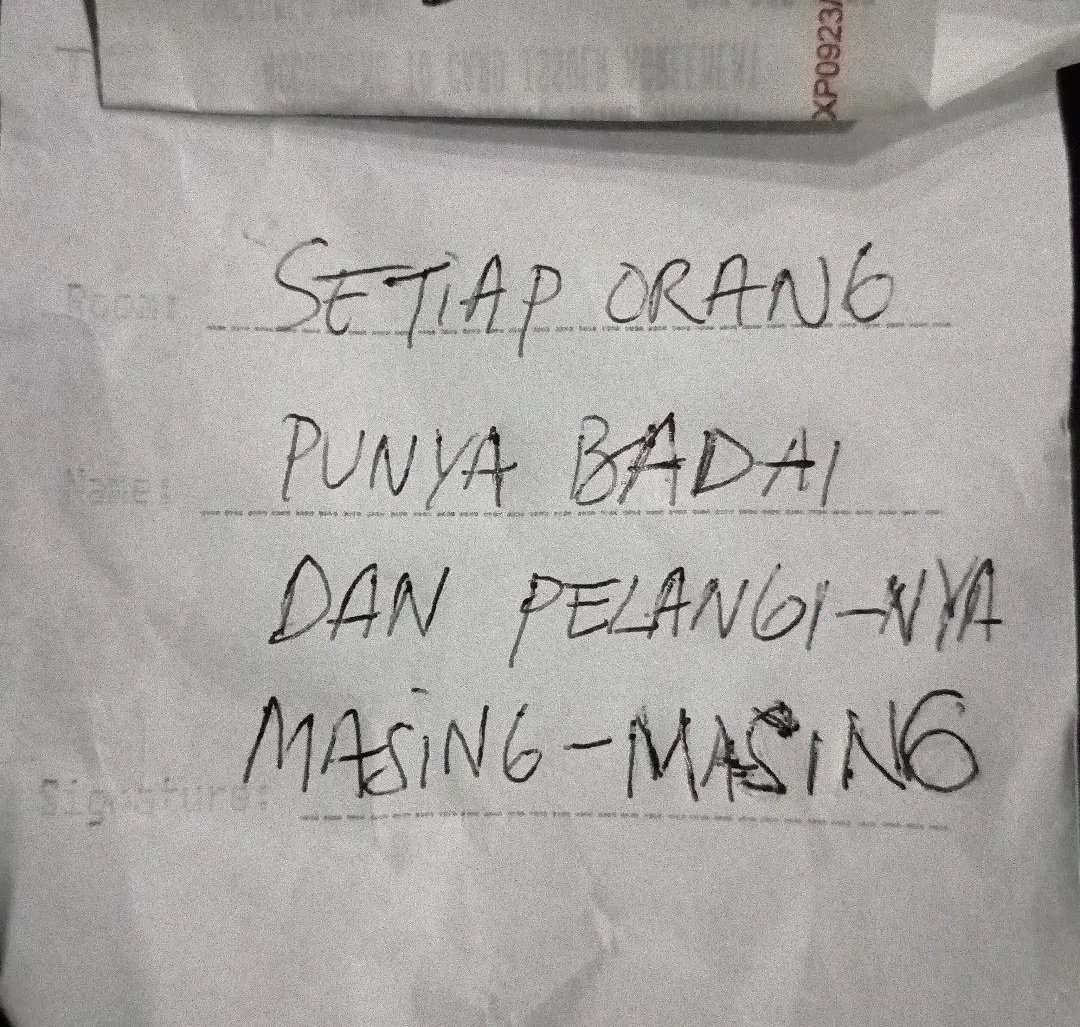 XP0923/
Room:
SETiAP ORANG
Name:
PUNYA BADAI
DAN PELANGI-NYA
MASiNG-MASING
Signature: